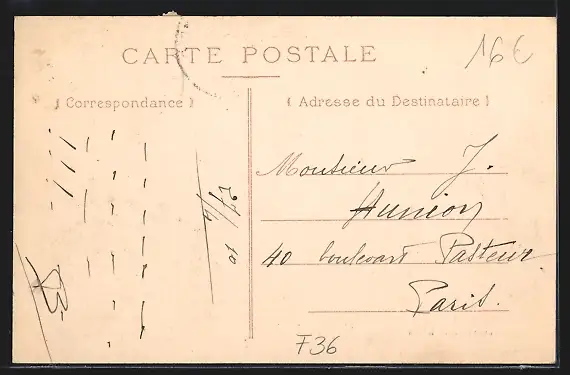 CARTE POSTALE
16€
( Correspondance )
( Adresse du Destinataire )
Monsieur J.
40 boulevart Pasteur
Paris.
F36